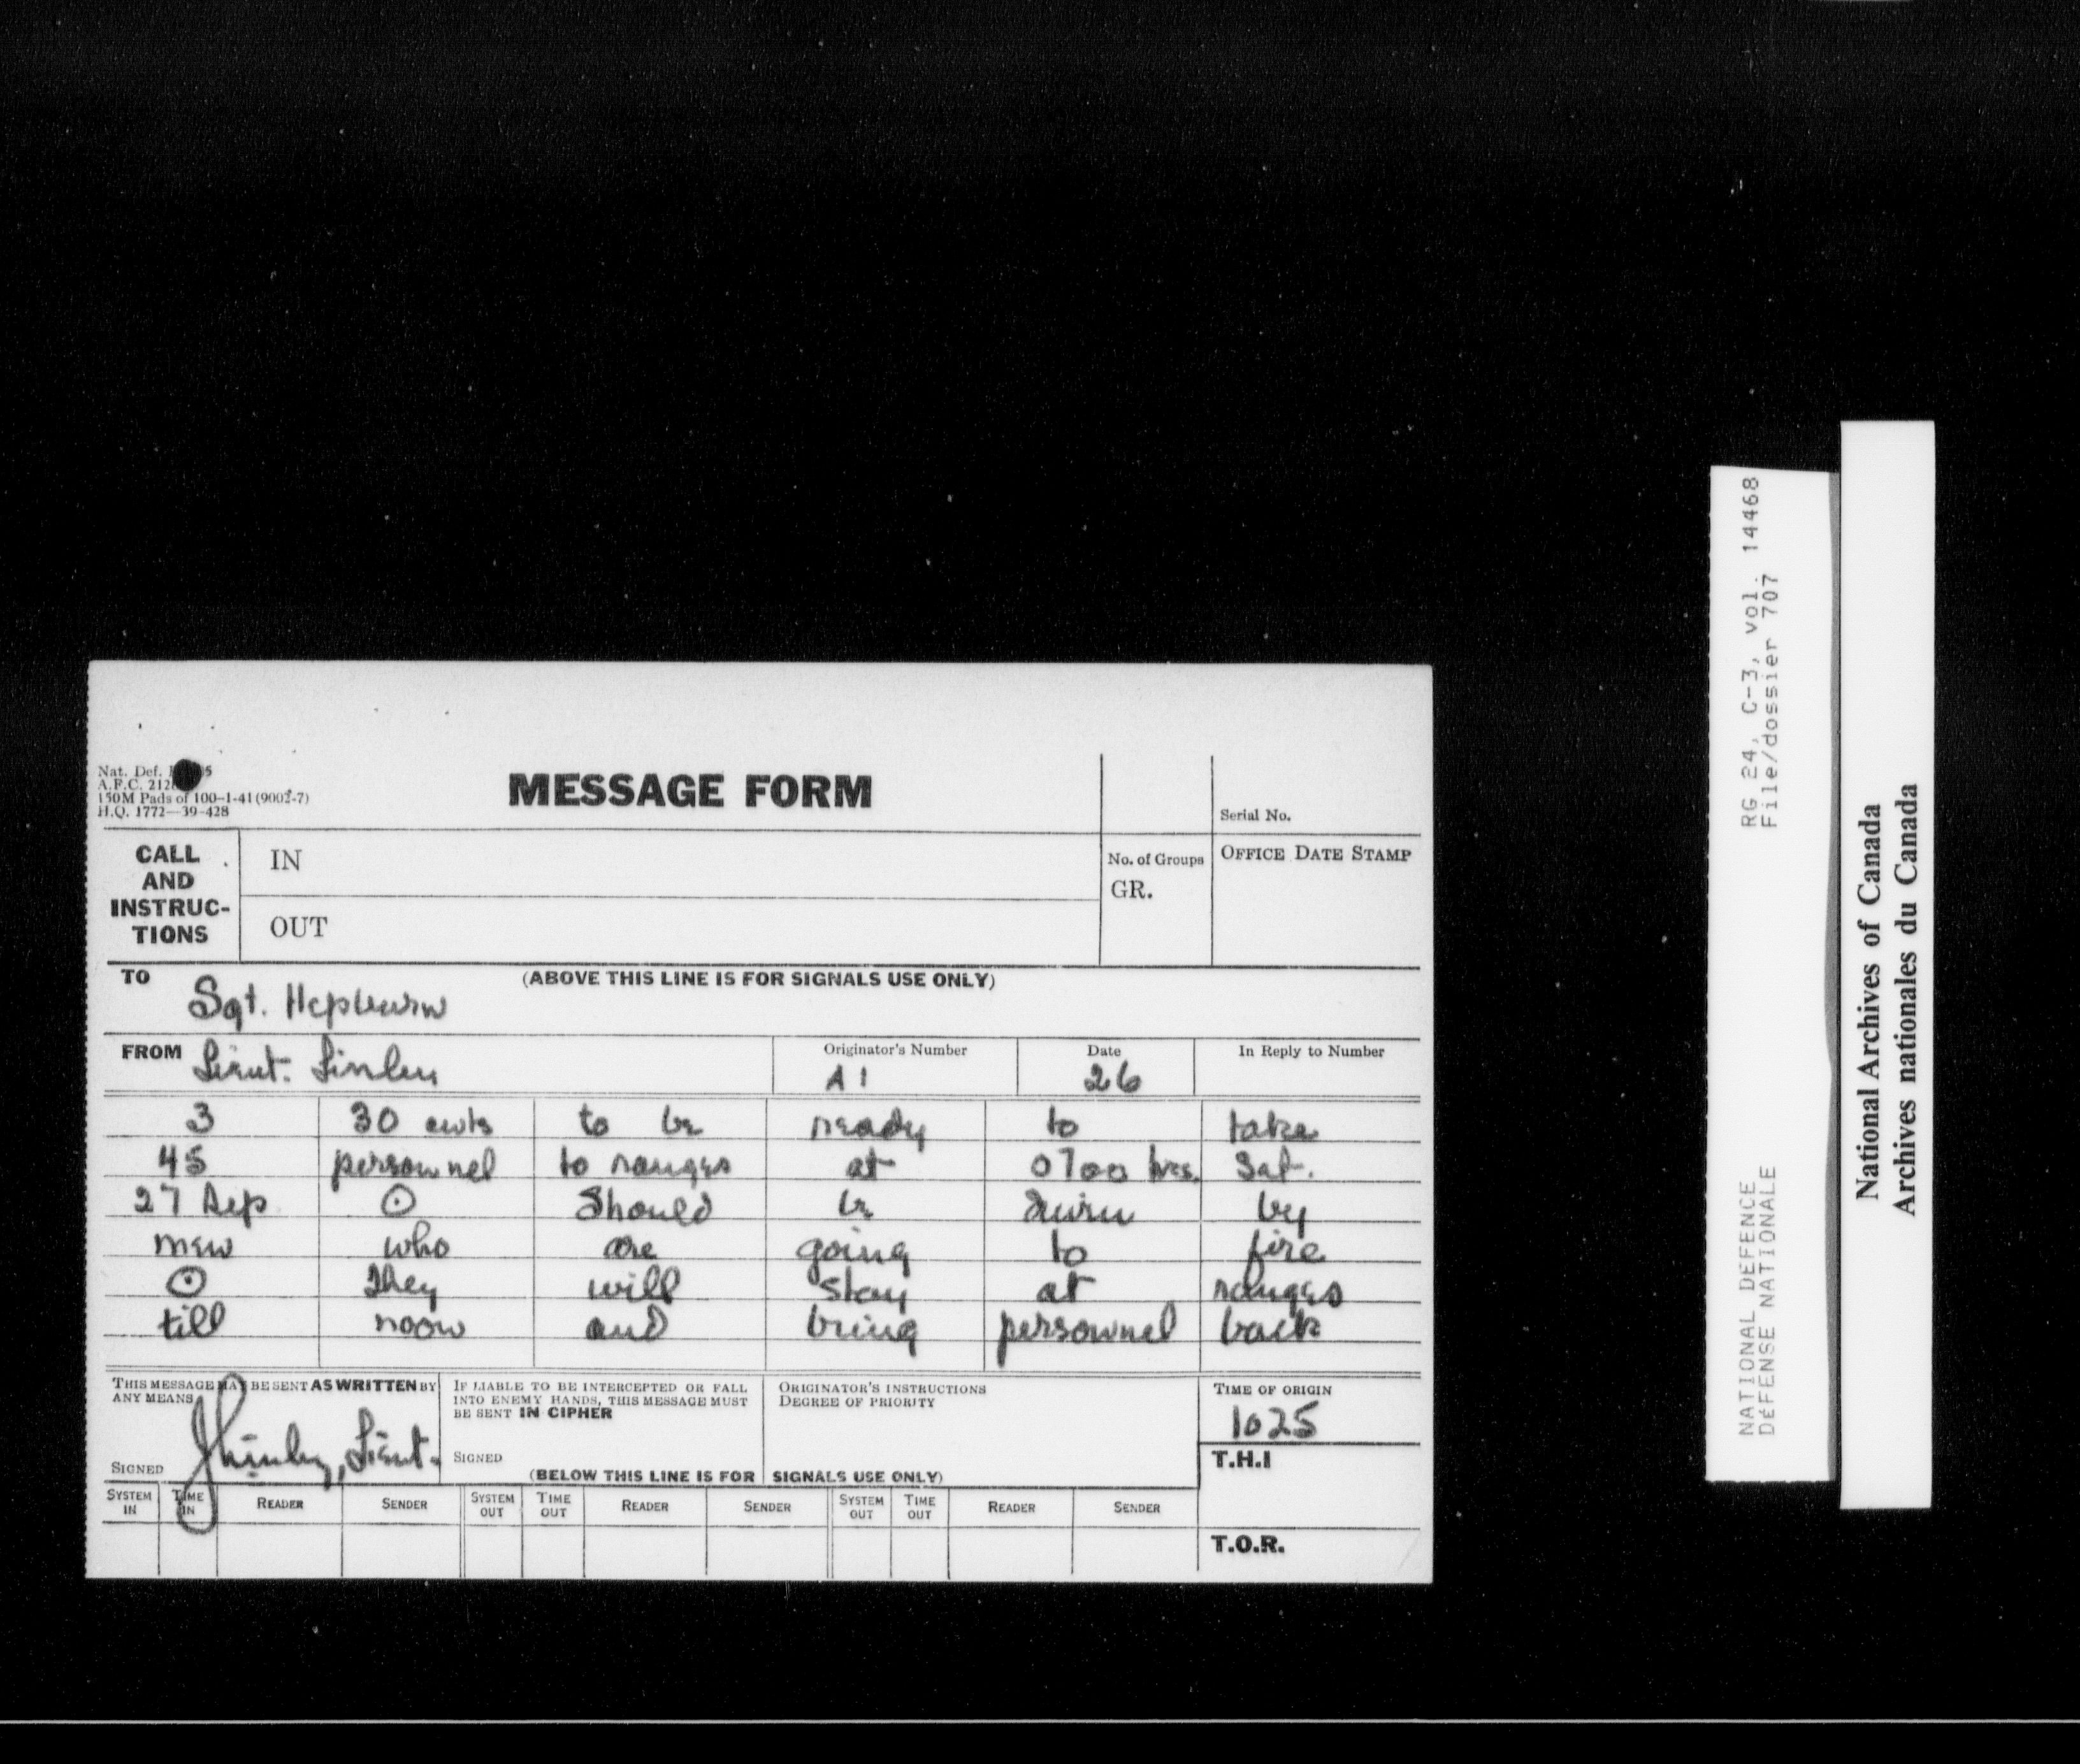 Nat. Def.
A.F.C. 212
150M Pads of 100-1-41 (9002-7)
H.Q. 1772—39-428
MESSAGE FORM
Serial No.
CALL AND INSTRUC-TIONS
IN
OUT
No. of Groups
GR.
OFFICE DATE STAMP
TO Sgt. Hepburn
(ABOVE THIS LINE IS FOR SIGNALS USE ONLY)
FROM Lieut.
Originator's Number A1
Date 26
In Reply to Number
3 30 cwts to be ready to take
45 personnel to ranges at 0700 hrs. Sat.
27 Sep ⊙ Should be driven by
men who are going to fire
⊙ They will stay at ranges
till noon and bring personnel back
THIS MESSAGE MAY BE SENT AS WRITTEN BY ANY MEANS
SIGNED Lieut.
IF LIABLE TO BE INTERCEPTED OR FALL INTO ENEMY HANDS, THIS MESSAGE MUST BE SENT IN CIPHER
SIGNED
ORIGINATOR'S INSTRUCTIONS
DEGREE OF PRIORITY
TIME OF ORIGIN
1025
T.H.I
(BELOW THIS LINE IS FOR SIGNALS USE ONLY)
SYSTEM IN TIME IN READER SENDER SYSTEM OUT TIME OUT READER SENDER SYSTEM OUT TIME OUT READER SENDER
T.O.R.
RG 24, C-3, vol. 14468
File/dossier 707
NATIONAL DEFENCE
DÉFENSE NATIONALE
National Archives of Canada
Archives nationales du Canada